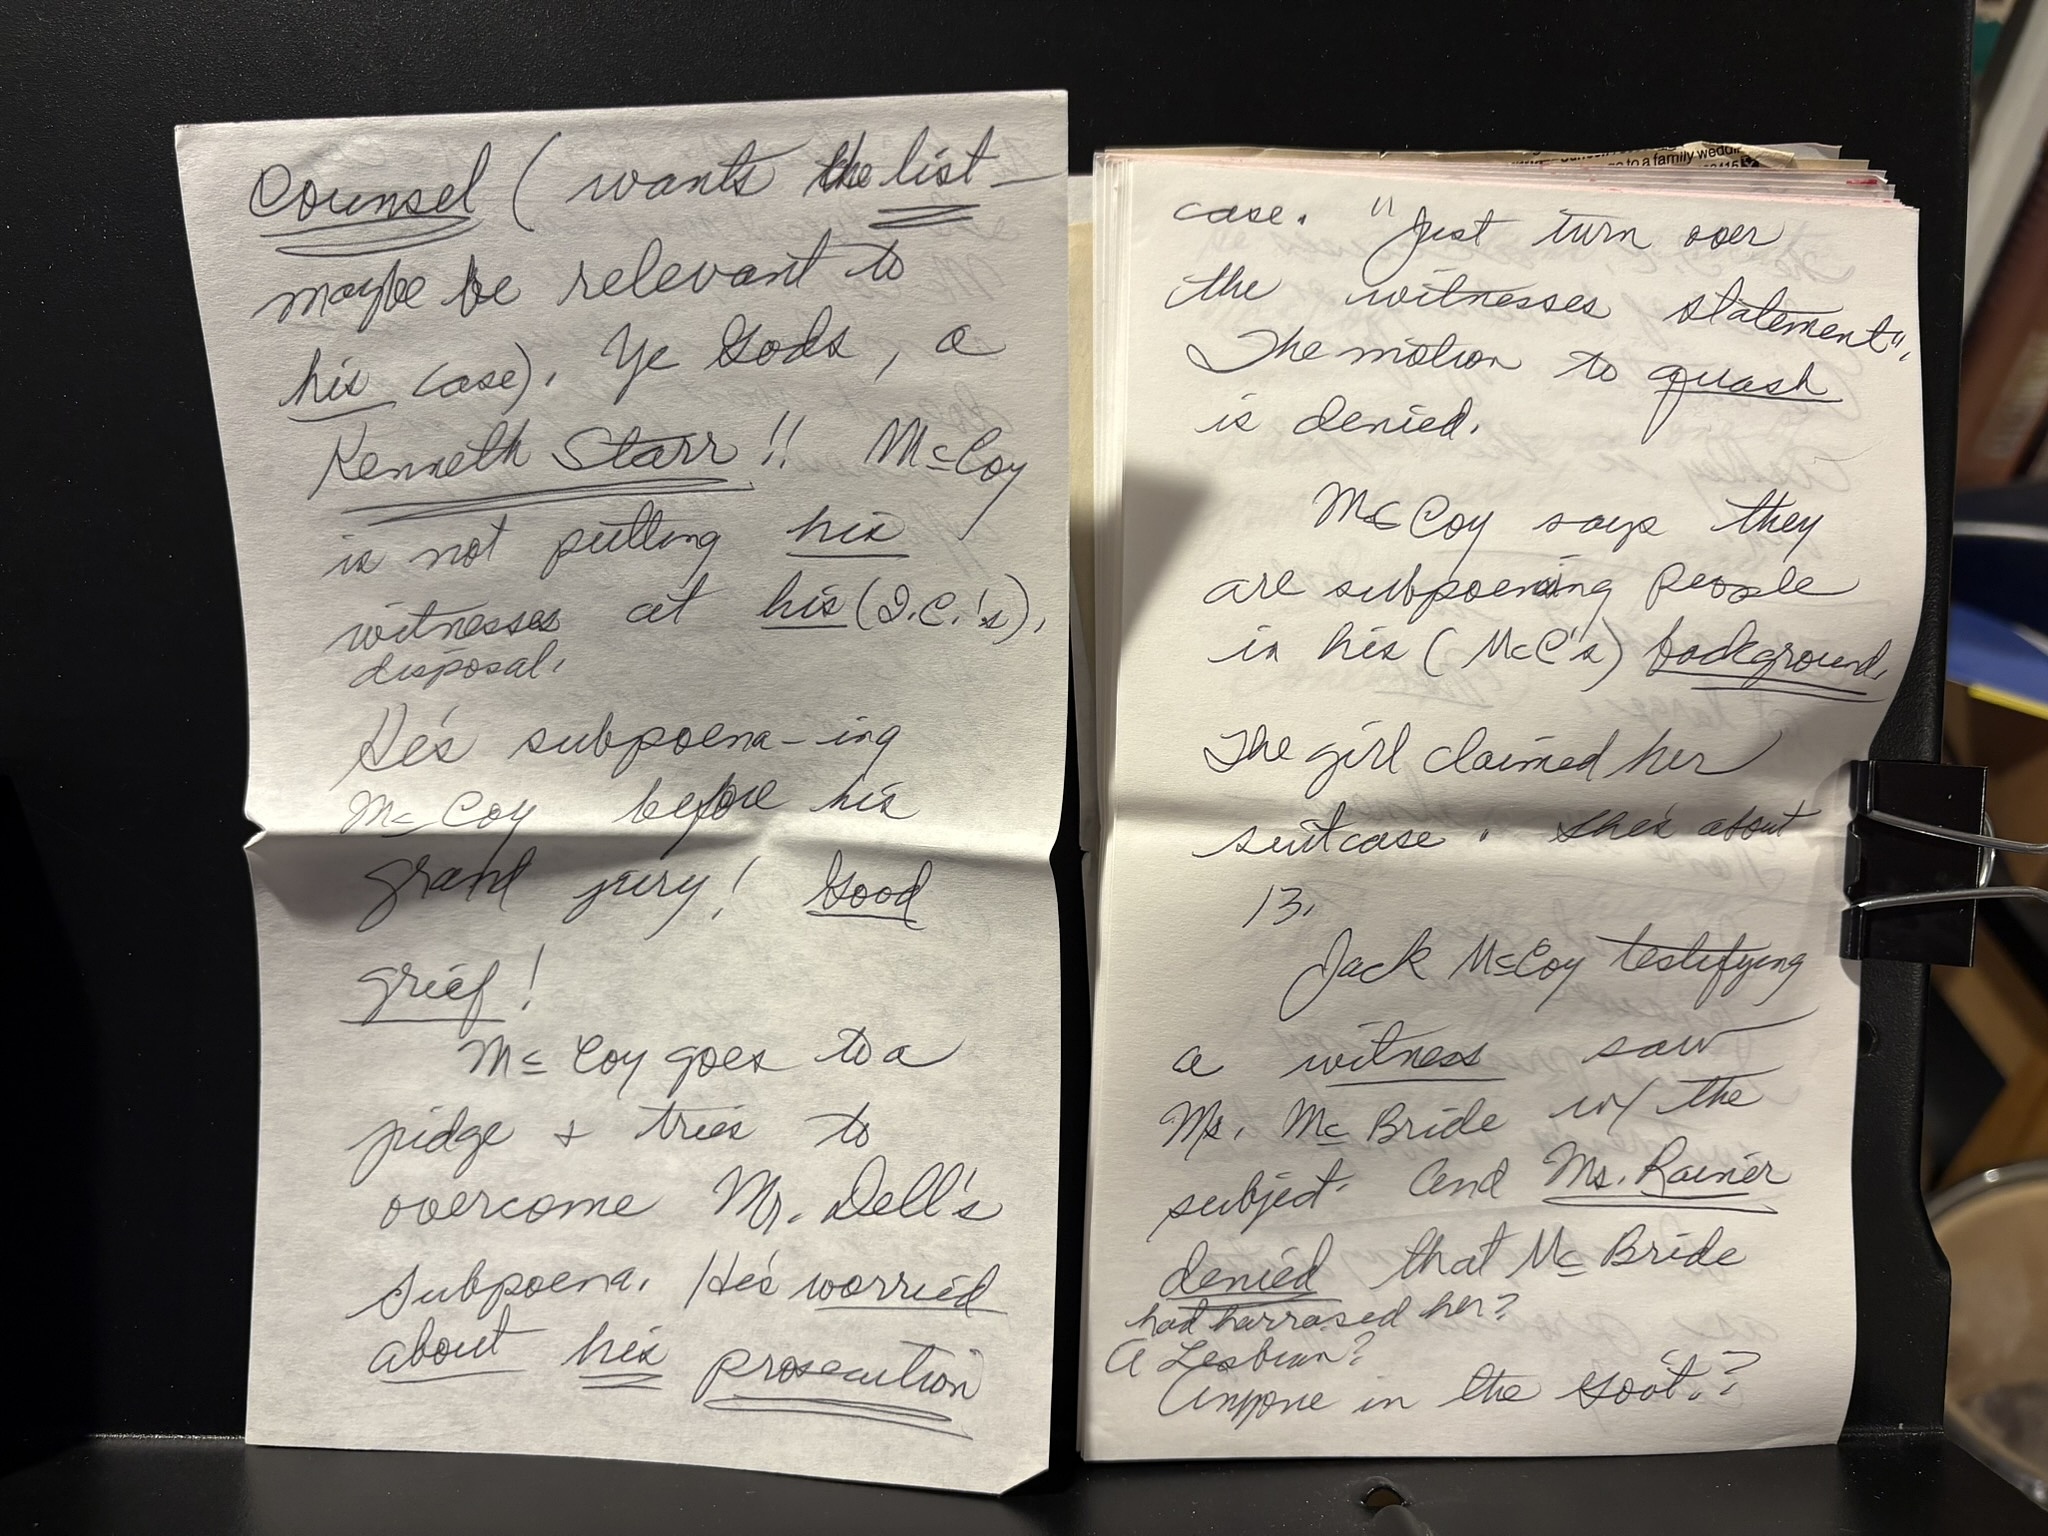 Counsel (wants the list –
maybe be relevant to
his case). Ye Gods, a
Kenneth Starr!! McCoy
is not putting his
witnesses at his (I.C.'s),
disposal.
He's subpoena-ing
McCoy before his
grand jury! Good
grief!
McCoy goes to a
judge & tries to
overcome Mr. Dell's
subpoena. He's worried
about his prosecution
to a family weddi
case. "Just turn over
the witnesses statement".
The motion to quash
is denied.
McCoy says they
are subpoenaing people
in his (McC's) background.
The girl claimed her
suitcase. She's about
13.
Jack McCoy testifying
a witness saw
Ms. McBride w/ the
subject. And Ms. Rainier
denied that McBride
had harrased her?
A Lesbian?
(Anyone in the Gov't.?